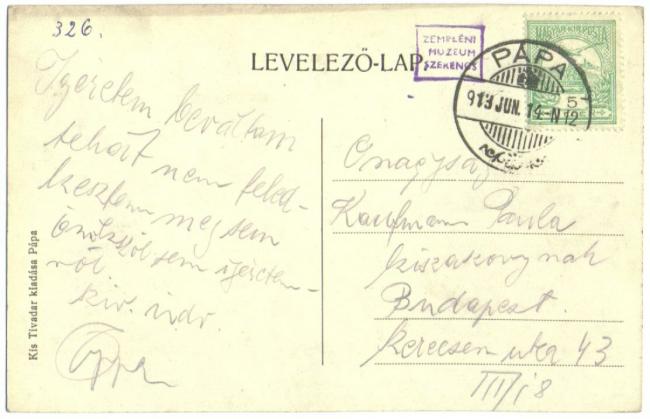 326.
LEVELEZŐ-LAP
ZEMPLÉNI
MUZEUM
SZERENCS
MAGYAR KIR. POSTA
PÁPA
913 JUN. 14-N12
5
Igéretem beváltom
tehát nem feled-
keztem meg sem
sem igéretem-
ről.
Kiv. üdv.
Kis Tivadar kiadása Pápa
Önagysága
Kaufmann Paula
kisasszonynak
Budapest.
Kerecsen utca 43
III/18